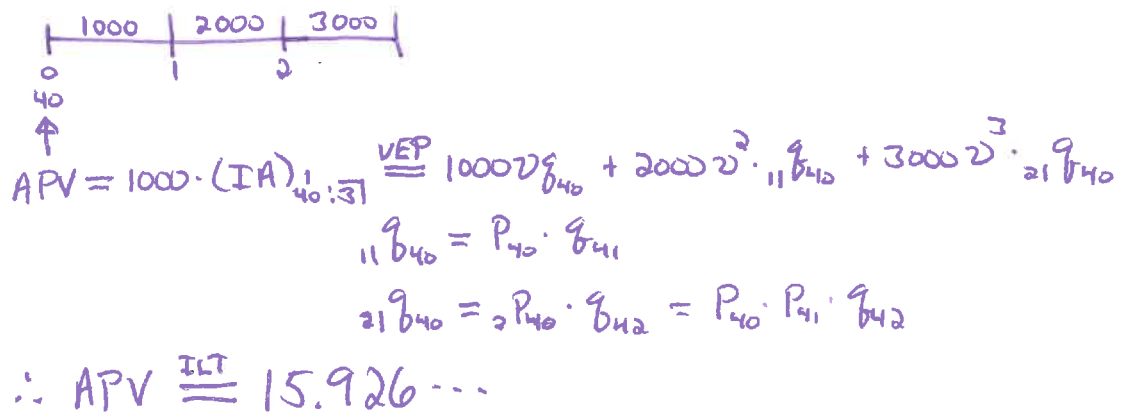 1000 2000 3000
0 1 2
40
APV = 1000·(IA)¹₄₀:₃̅| ≝(VEP) 1000νq₄₀ + 2000ν²·₁|q₄₀ + 3000ν³·₂|q₄₀
₁|q₄₀ = P₄₀·q₄₁
₂|q₄₀ = ₂P₄₀·q₄₂ = P₄₀·P₄₁·q₄₂
∴ APV ≝(ILT) 15.926···